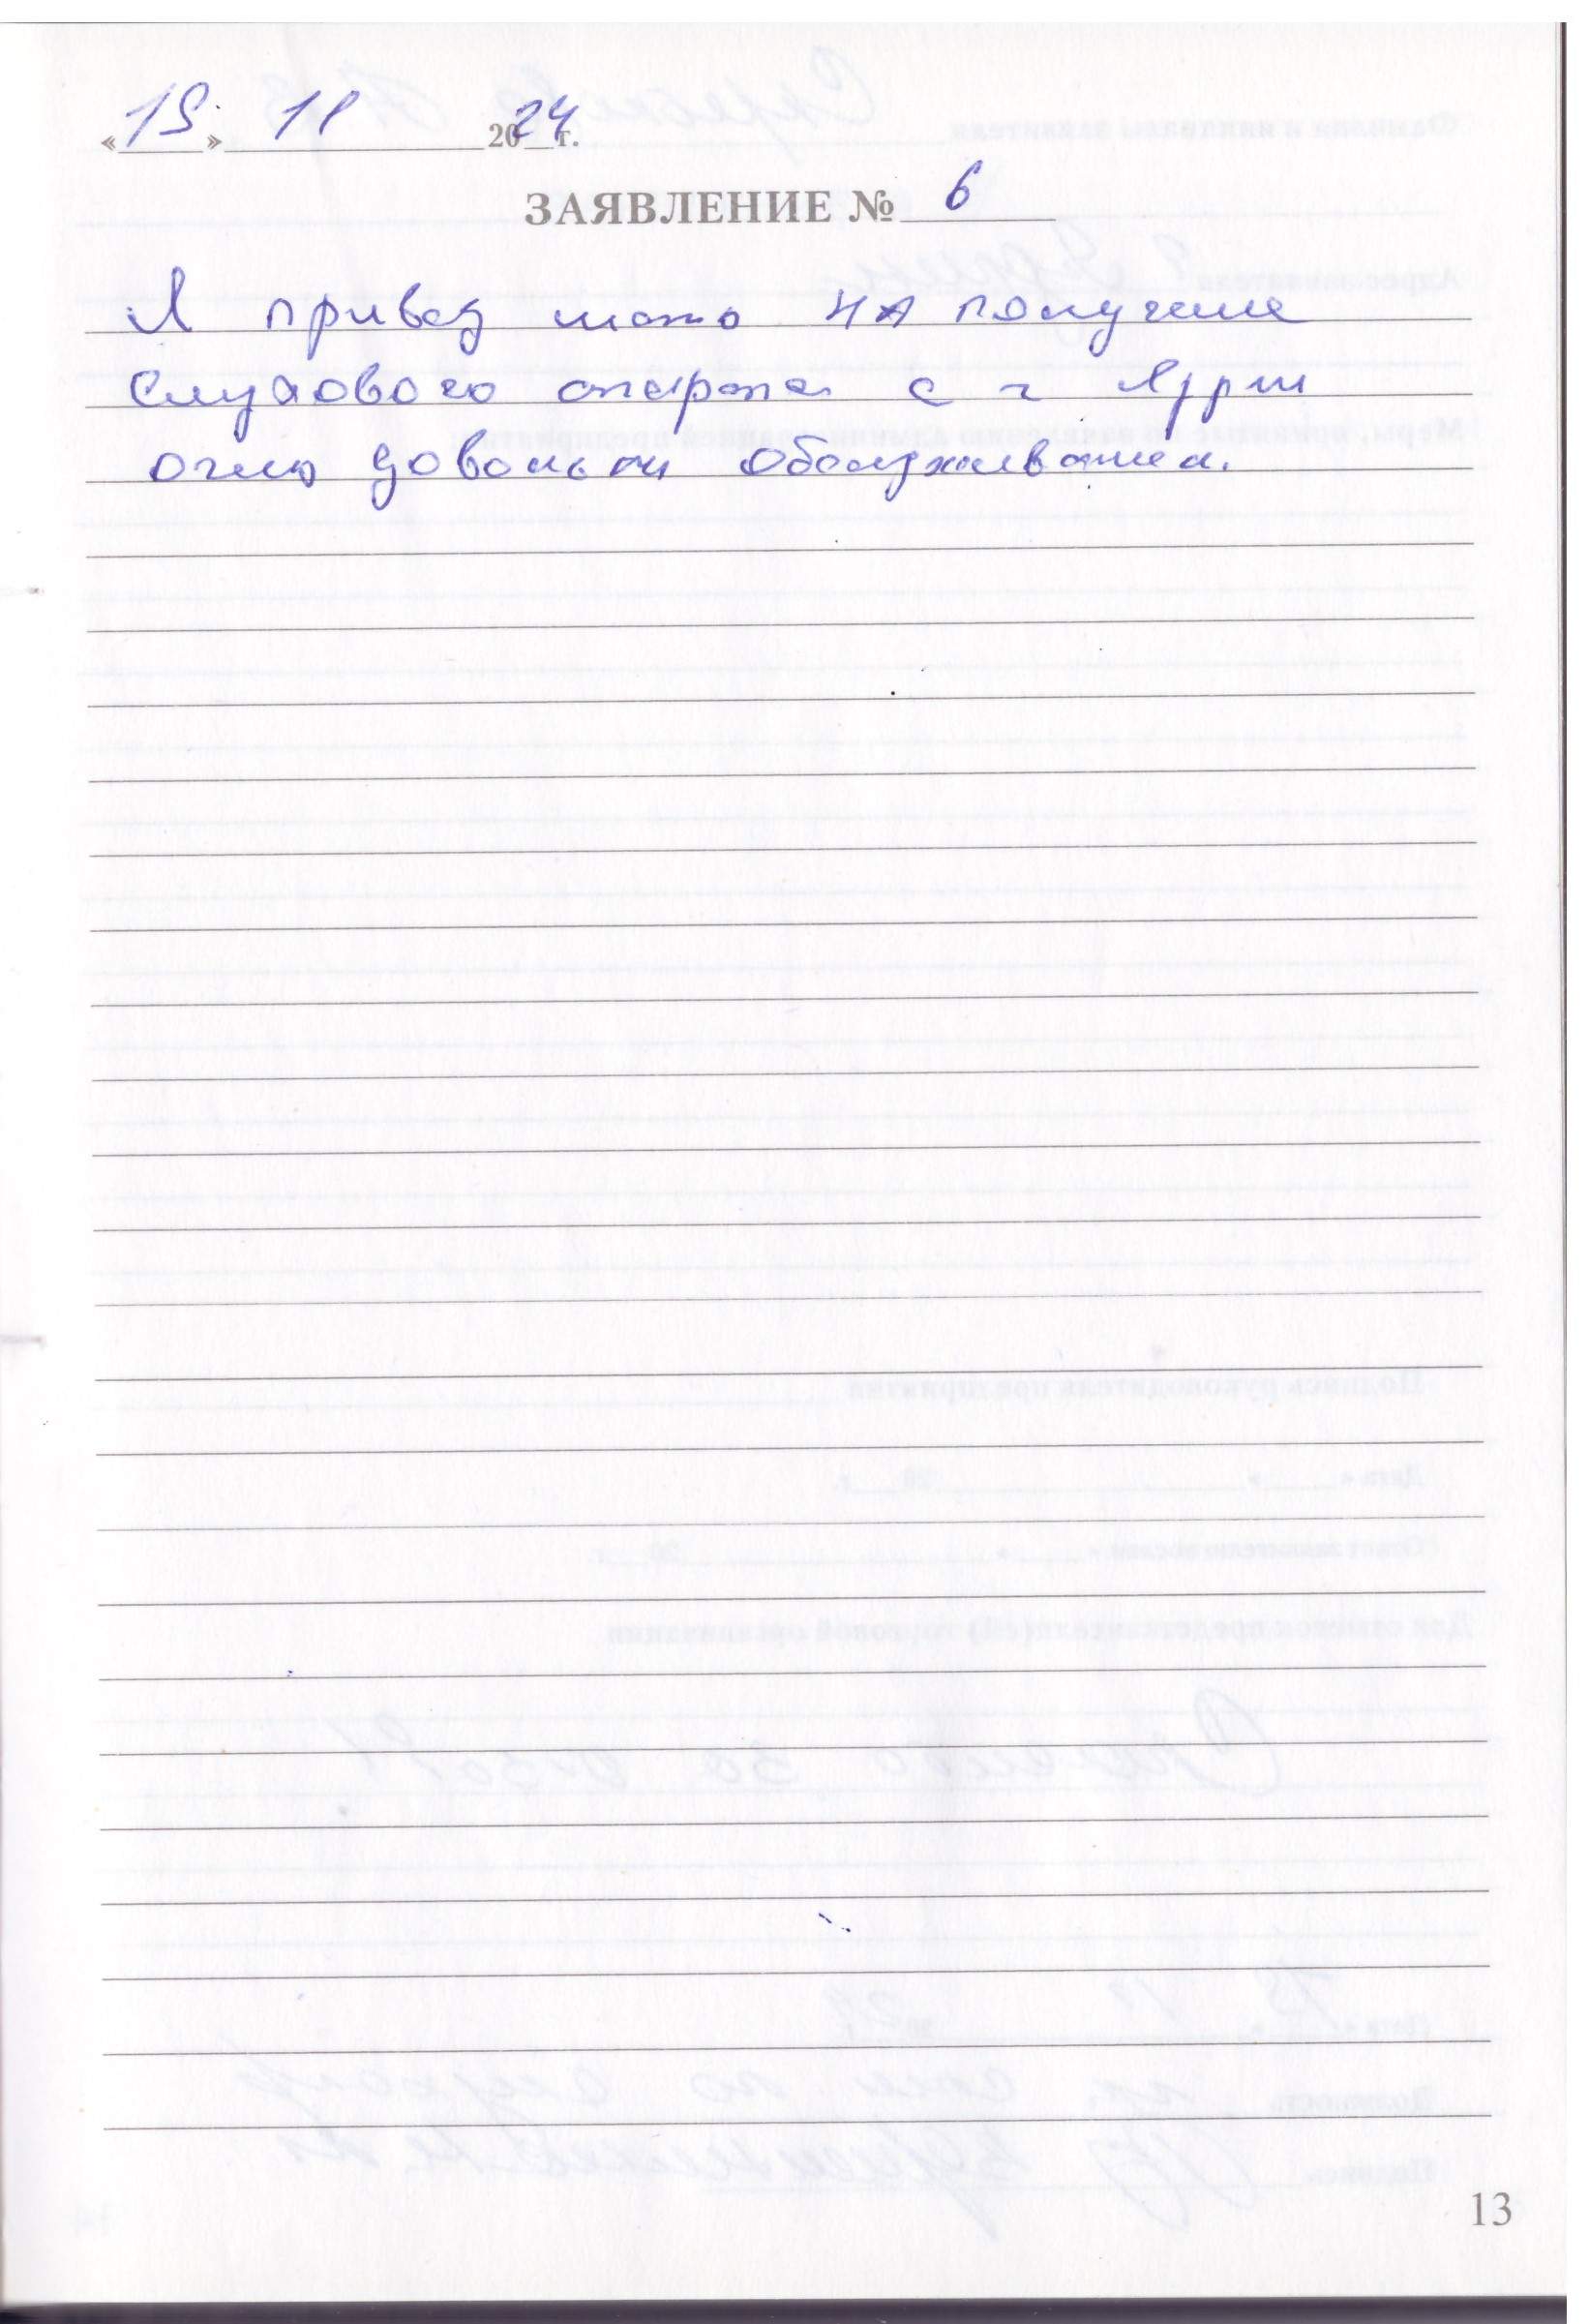 «19» 11 2024 г.
ЗАЯВЛЕНИЕ № 6
Я привез мать на получение
слухового аппарата с г
очень довольны обслуживанием.
13